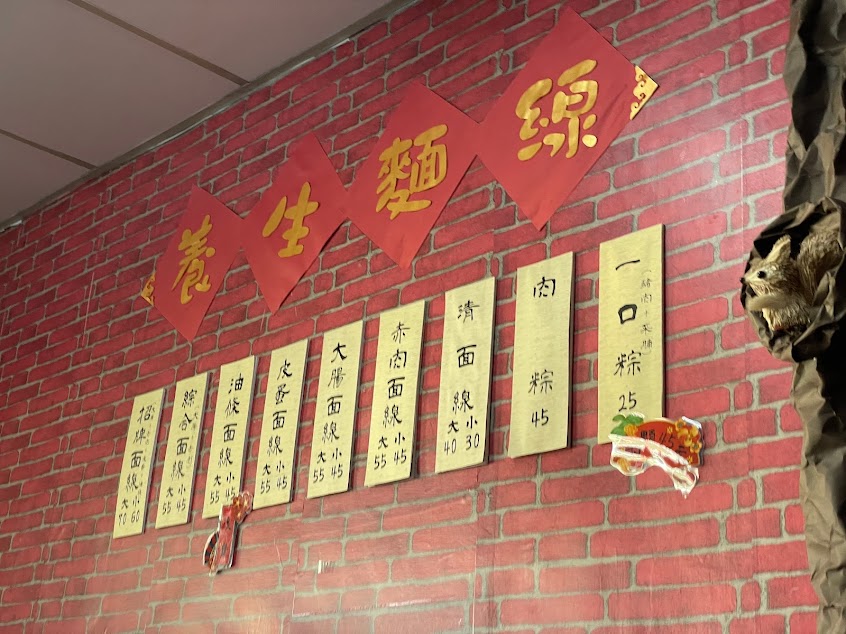 養生麵線
一口粽25
肉粽45
清面線小30
大40
赤肉面線小45
大55
大腸面線小45
大55
皮蛋面線小45
大55
油條面線小45
大55
綜合面線小45
大55
招牌面線小60
大70